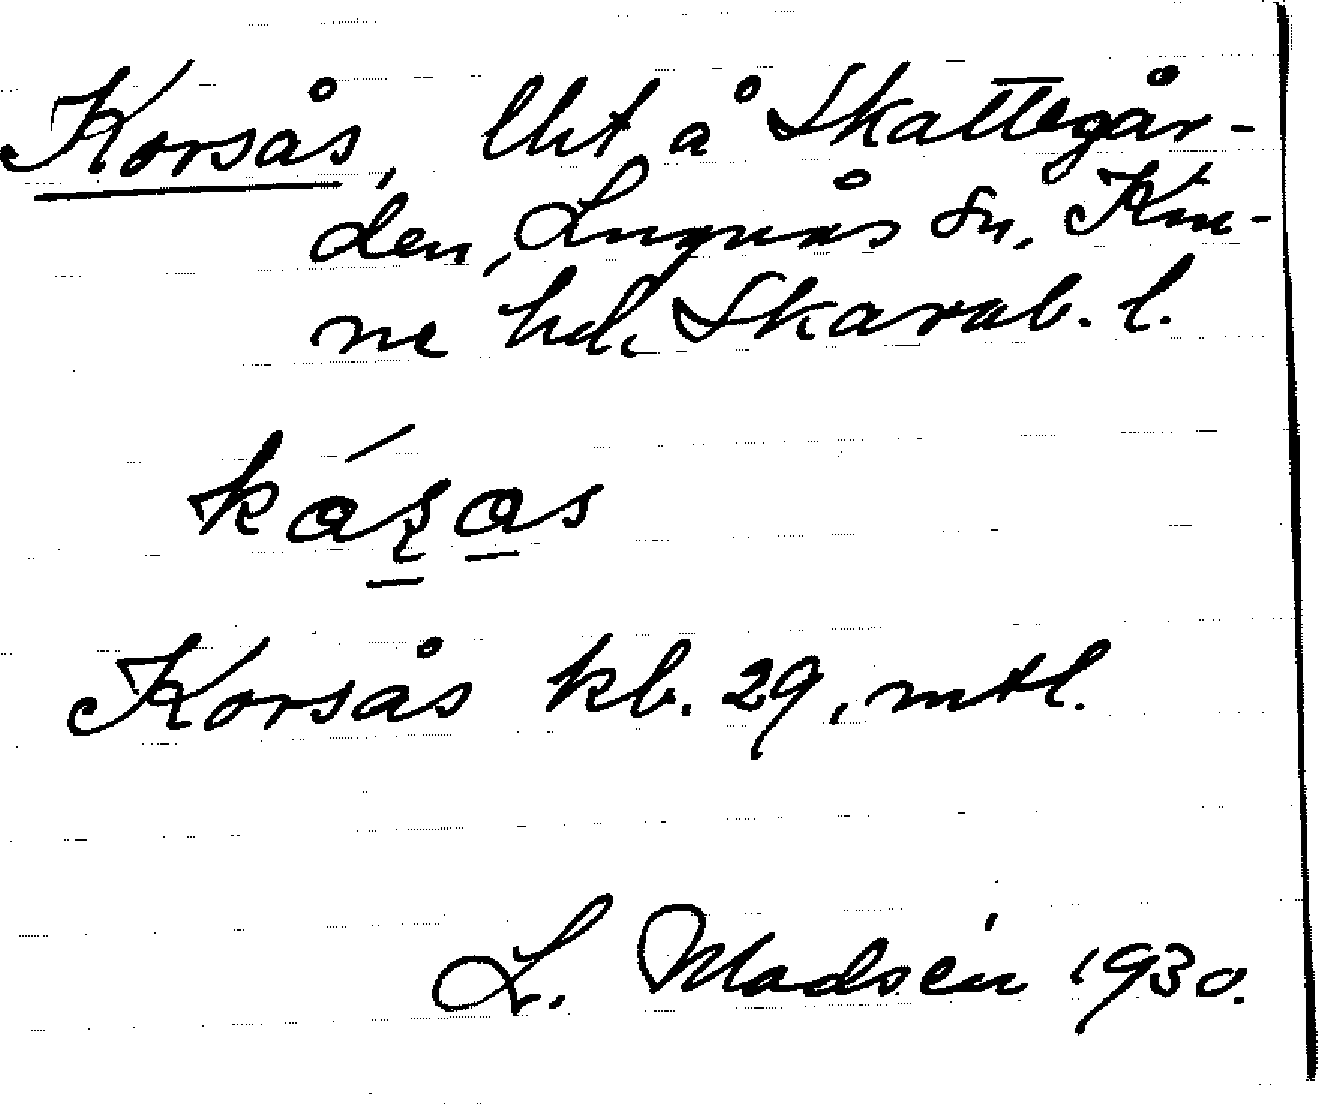 Korsås, lht å Skattegår-
den, Lugnås sn, Kin-
ne hd, Skarab. l.
Korsås kb. 29, mtl.
L. Madsén 1930.